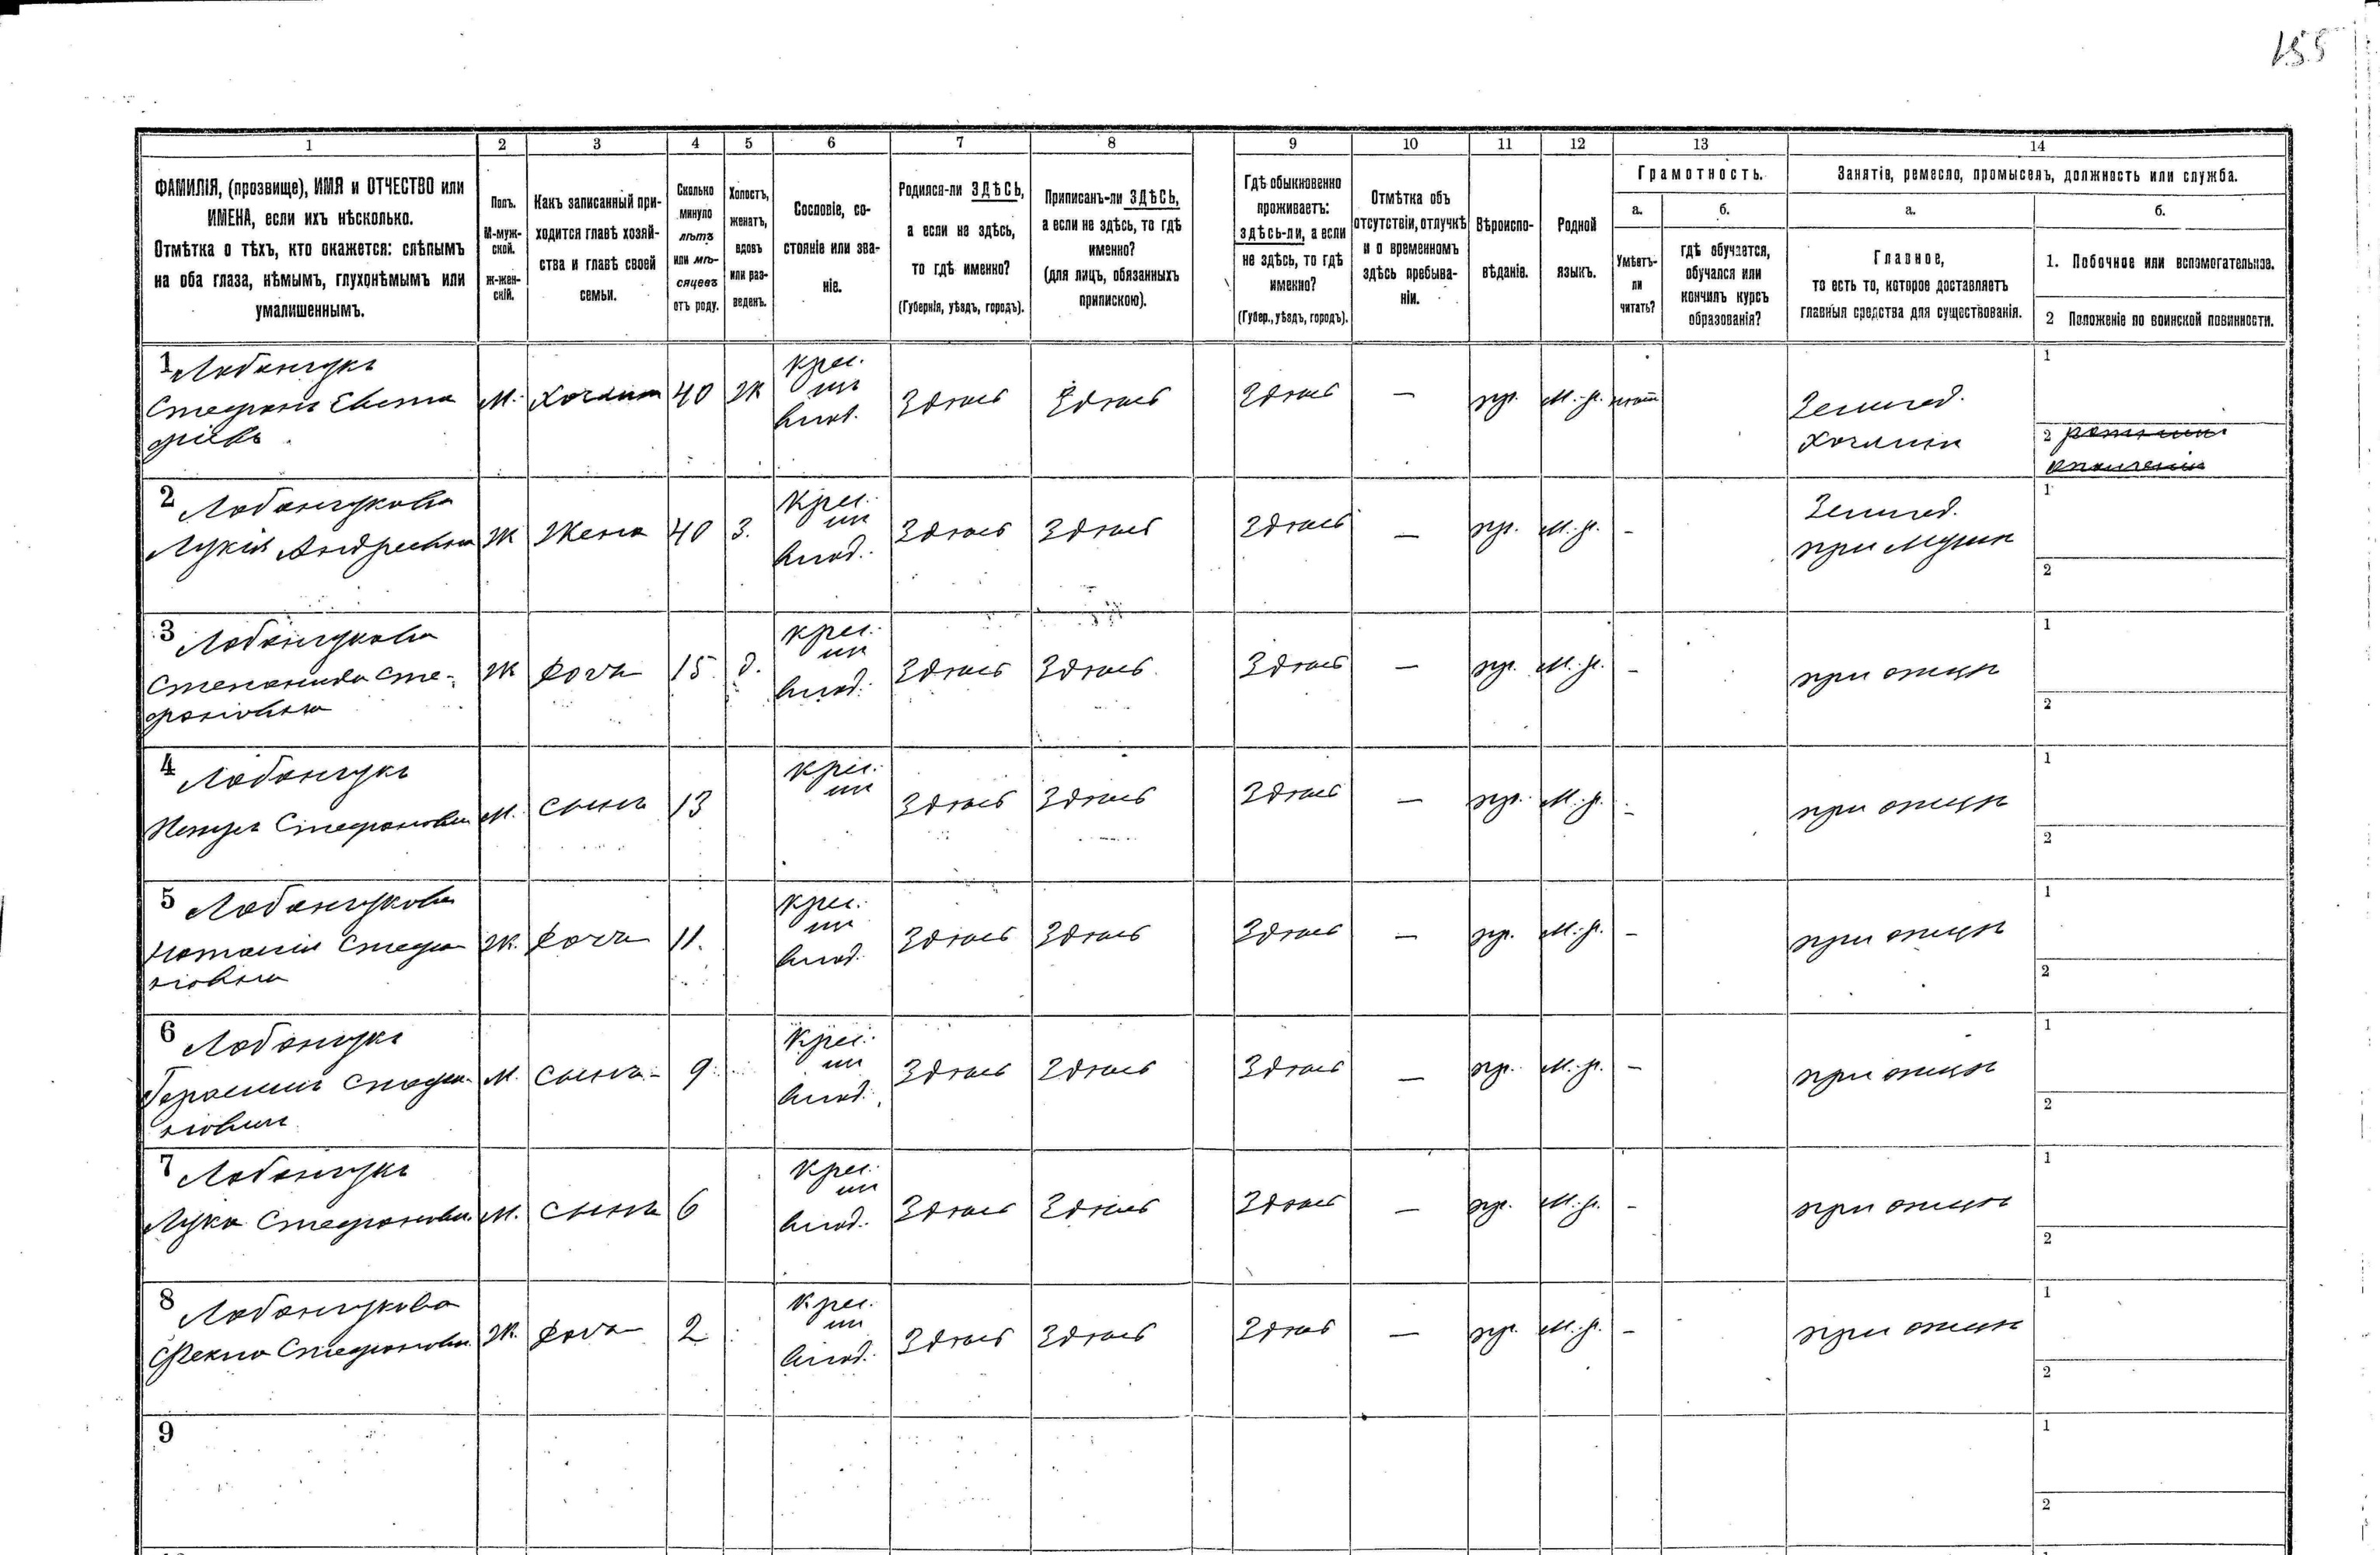 155
1 2 3 4 5 6 7 8 9 10 11 12 13 14
ФАМИЛІЯ, (прозвище), ИМЯ и ОТЧЕСТВО или
ИМЕНА, если ихъ нѣсколько.
Отмѣтка о тѣхъ, кто окажется: слѣпымъ
на оба глаза, нѣмымъ, глухонѣмымъ или
умалишеннымъ.
Полъ.
М-муж-
ской.
ж-жен-
скій.
Какъ записанный при-
ходится главѣ хозяй-
ства и главѣ своей
семьи.
Сколько
минуло
лѣтъ
или мѣ-
сяцевъ
отъ роду.
Холостъ,
женатъ,
вдовъ
или раз-
веденъ.
Сословіе, со-
стояніе или зва-
ніе.
Родился-ли ЗДѢСЬ,
а если не здѣсь,
то гдѣ именно?
(Губернія, уѣздъ, городъ).
Приписанъ-ли ЗДѢСЬ,
а если не здѣсь, то гдѣ
именно?
(для лицъ, обязанныхъ
припискою).
Гдѣ обыкновенно
проживаетъ:
здѣсь-ли, а если
не здѣсь, то гдѣ
именно?
(Губер., уѣздъ, городъ).
Отмѣтка объ
отсутствіи, отлучкѣ
и о временномъ
здѣсь пребыва-
ніи.
Вѣроиспо-
вѣданіе.
Родной
языкъ.
Грамотность.
а.
Умѣетъ-
ли
читать?
б.
гдѣ обучается,
обучался или
кончилъ курсъ
образованія?
Занятіе, ремесло, промыселъ, должность или служба.
а.
Главное,
то есть то, которое доставляетъ
главныя средства для существованія.
б.
1. Побочное или вспомогательное.
2 Положеніе по воинской повинности.
1 Лобанчукъ
Стефанъ Евста
фіевъ
М. хозяинъ 40 Ж
крес.
изъ
влад.
Здѣсь Здѣсь Здѣсь — пр. М.-р. нѣтъ
Землед.
хозяинъ
1
2
2 Лобанчукова
Лукія Андреевна
Ж Жена 40 З.
крес.
изъ
влад.
Здѣсь Здѣсь Здѣсь — пр. М.-р. -
Землед.
при мужѣ
1
2
3 Лобанчукова
Степанида Сте-
фановна
Ж дочь 15 д.
крес.
изъ
влад.
Здѣсь Здѣсь Здѣсь — пр. М.-р. -
при отцѣ
1
2
4 Лобанчукъ
Петръ Стефановъ
М. сынъ 13
крес.
изъ
Здѣсь Здѣсь Здѣсь — пр. М.-р. -
при отцѣ
1
2
5 Лобанчукова
Наталія Стефа
новна
Ж. дочь 11.
крес.
изъ
влад.
Здѣсь Здѣсь Здѣсь — пр. М.-р. -
при отцѣ
1
2
6 Лобанчукъ
Герасимъ Стефа-
новичъ
М. сынъ 9
крес.
изъ
влад.
Здѣсь Здѣсь Здѣсь — пр. М.-р. -
при отцѣ
1
2
7 Лобанчукъ
Лука Стефановъ
М. сынъ 6
крес.
изъ
влад.
Здѣсь Здѣсь Здѣсь — пр. М.-р. -
при отцѣ
1
2
8 Лобанчукова
Фекла Стефанова
Ж. дочь 2
крес.
изъ
влад.
Здѣсь Здѣсь Здѣсь — пр. М.-р. -
при отцѣ
1
2
9
1
2